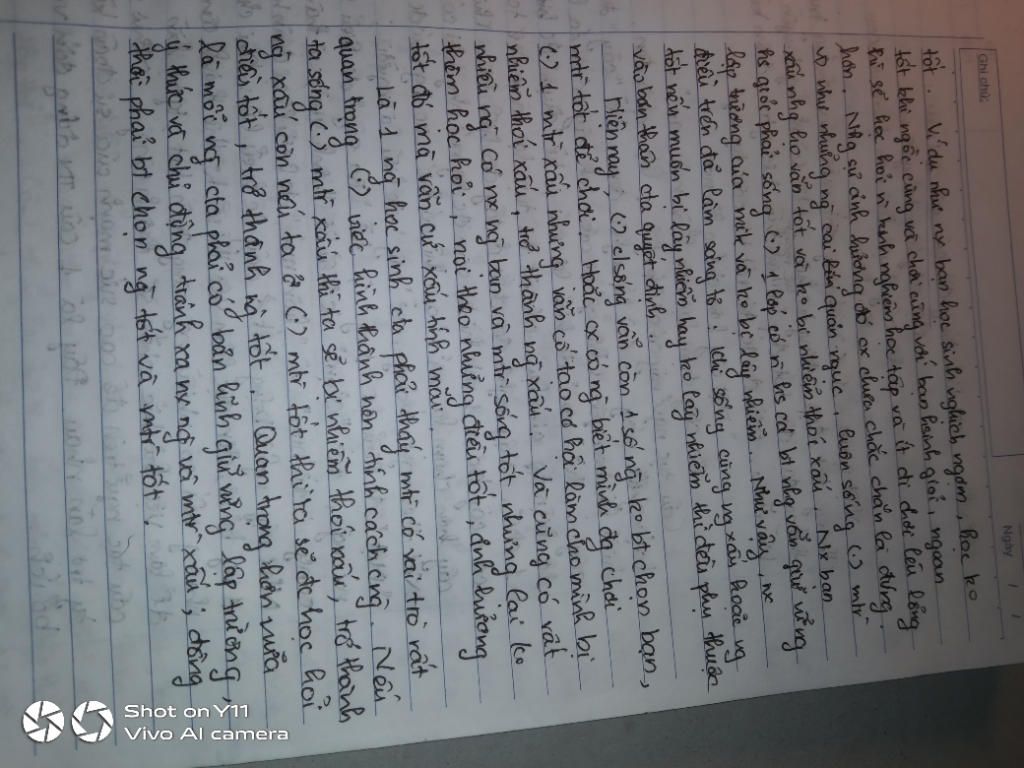 Ghi chú:
Ngày / /
tốt. Ví dụ như nx bạn học sinh nghịch ngợm, học ko
tốt khi ngồi cùng và chơi cùng với bạn hsinh giỏi, ngoan
thì sẽ học hỏi n kinh nghiệm học tập và ít đi chơi lêu lổng
hơn. Nhg sự ảnh hưởng đó cx chưa chắc chắn là đúng
vd như những ng cai quản ngục, luôn sống (.) mtr
xấu nhg họ vẫn tốt và ko bị nhiễm thói xấu. Nx bạn
hs giỏi phải sống (.) 1 lớp có n hs cá bị nhg vẫn giữ vững
lập trường của mk và ko bị lây nhiễm. Như vậy, nx
điều trên đã làm sáng tỏ. Khi sống cùng ng xấu hoặc ng
tốt nếu muốn bị lây nhiễm hay ko lây nhiễm thì đều phụ thuộc
vào bản thân cta quyết định.
Hiện nay, (.) c/sống vẫn còn 1 số ng ko bt chọn bạn,
mtr tốt để chơi. Hoặc cx có ng biết mình đg chơi
(.) 1 mtr xấu nhưng vẫn cố tạo cơ hội làm cho mình bị
nhiễm thói xấu, trở thành ng xấu. Và cũng có rất
nhiều ng có nx ng bạn và mtr sống tốt nhưng lại ko
thèm học hỏi, noi theo những điều tốt, ảnh hưởng
tốt đó mà vẫn cứ xấu tính mãi.
Là 1 ng học sinh cta phải thấy mtr có vai trò rất
quan trọng (.) việc hình thành nên tính cách cng. Nếu
ta sống (.) mtr xấu thì ta sẽ bị nhiễm thói xấu, trở thành
ng xấu còn nếu ta ở (.) mtr tốt thì ta sẽ đc học hỏi
điều tốt, trở thành ng tốt. Quan trọng hơn nữa
là mỗi ng cta phải có bản lĩnh giữ vững lập trường,
ý thức và chủ động tránh xa nx ng và mtr xấu; đồng
thời phải bt chọn ng tốt và mtr tốt.
Shot on Y11
Vivo AI camera